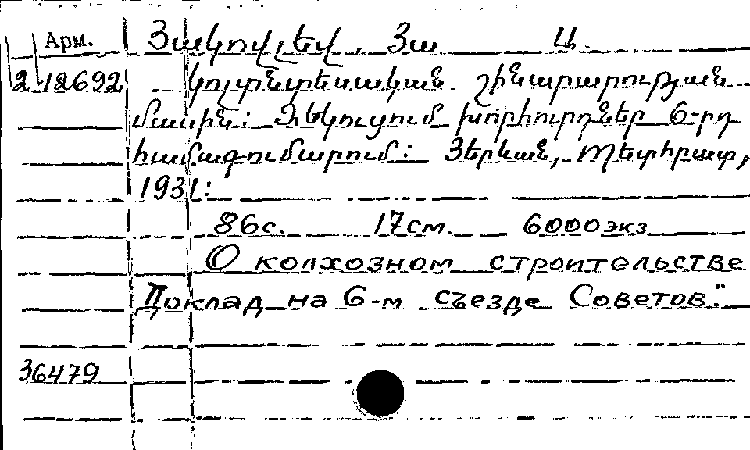 Арм. Յակովլեվ, Յա Ա.
2-12692 կոլտնտեսական շինարարության
մասին: Զեկուցում խորհուրդներ 6-րդ
համագումարում: Յերևան, Պետհրատ,
1931:
86с. 17см. 6000экз
О колхозном строительстве
Доклад на 6-м съезде Советов."
36479